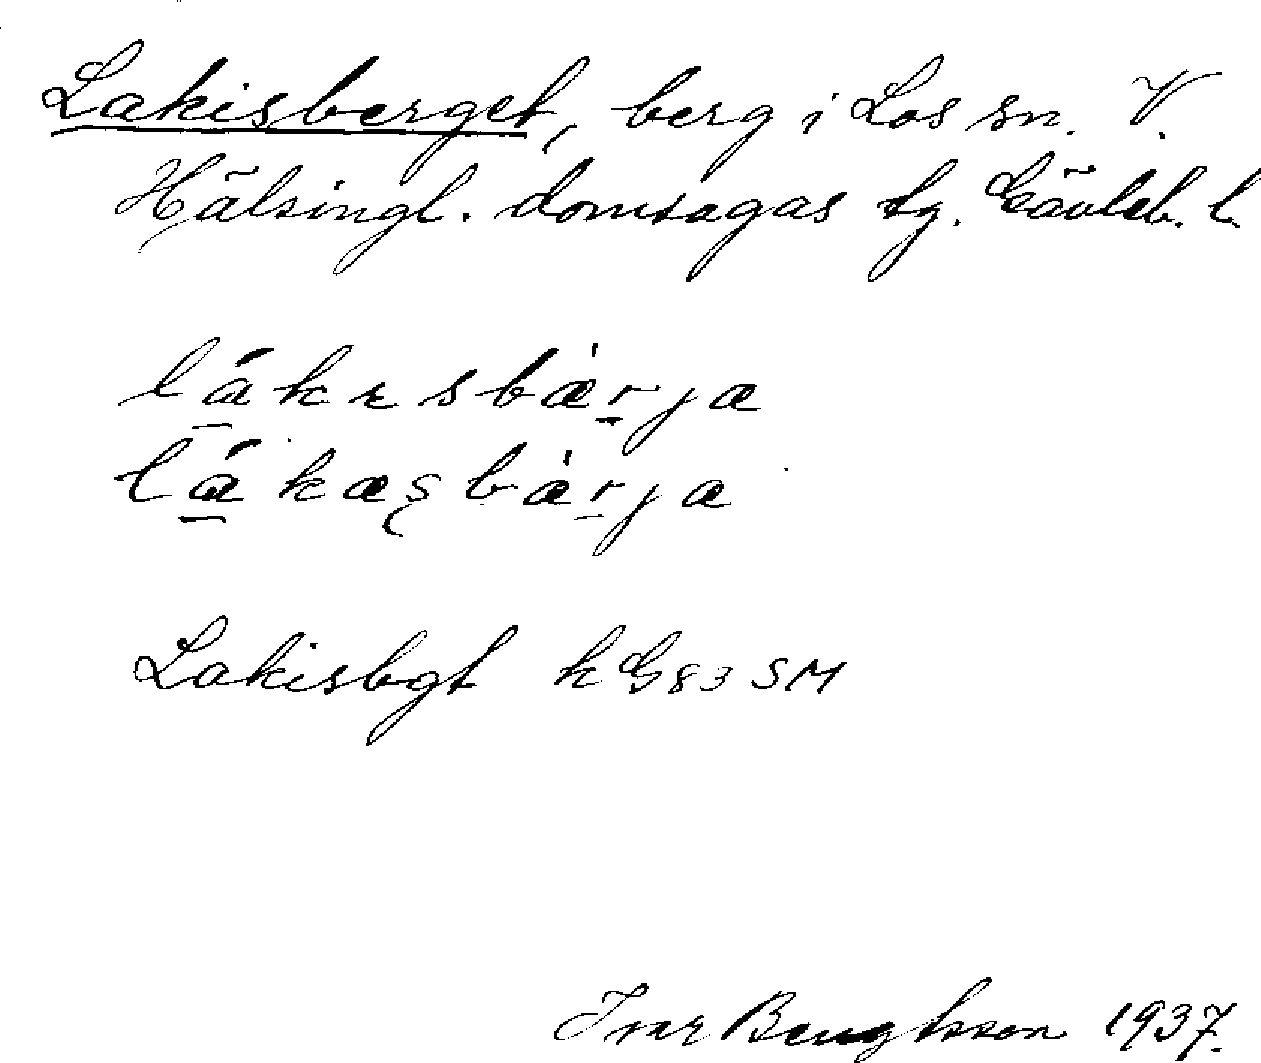 Lakisberget, berg i Los sn. V.
Hälsingl. domsagas tg. Gävleb. l.
lákɪsbæ̀r̠ja
lákæʂbæ̀r̠ja
Lakisbgt kG83 SM
Ivar Bengtsson 1937.